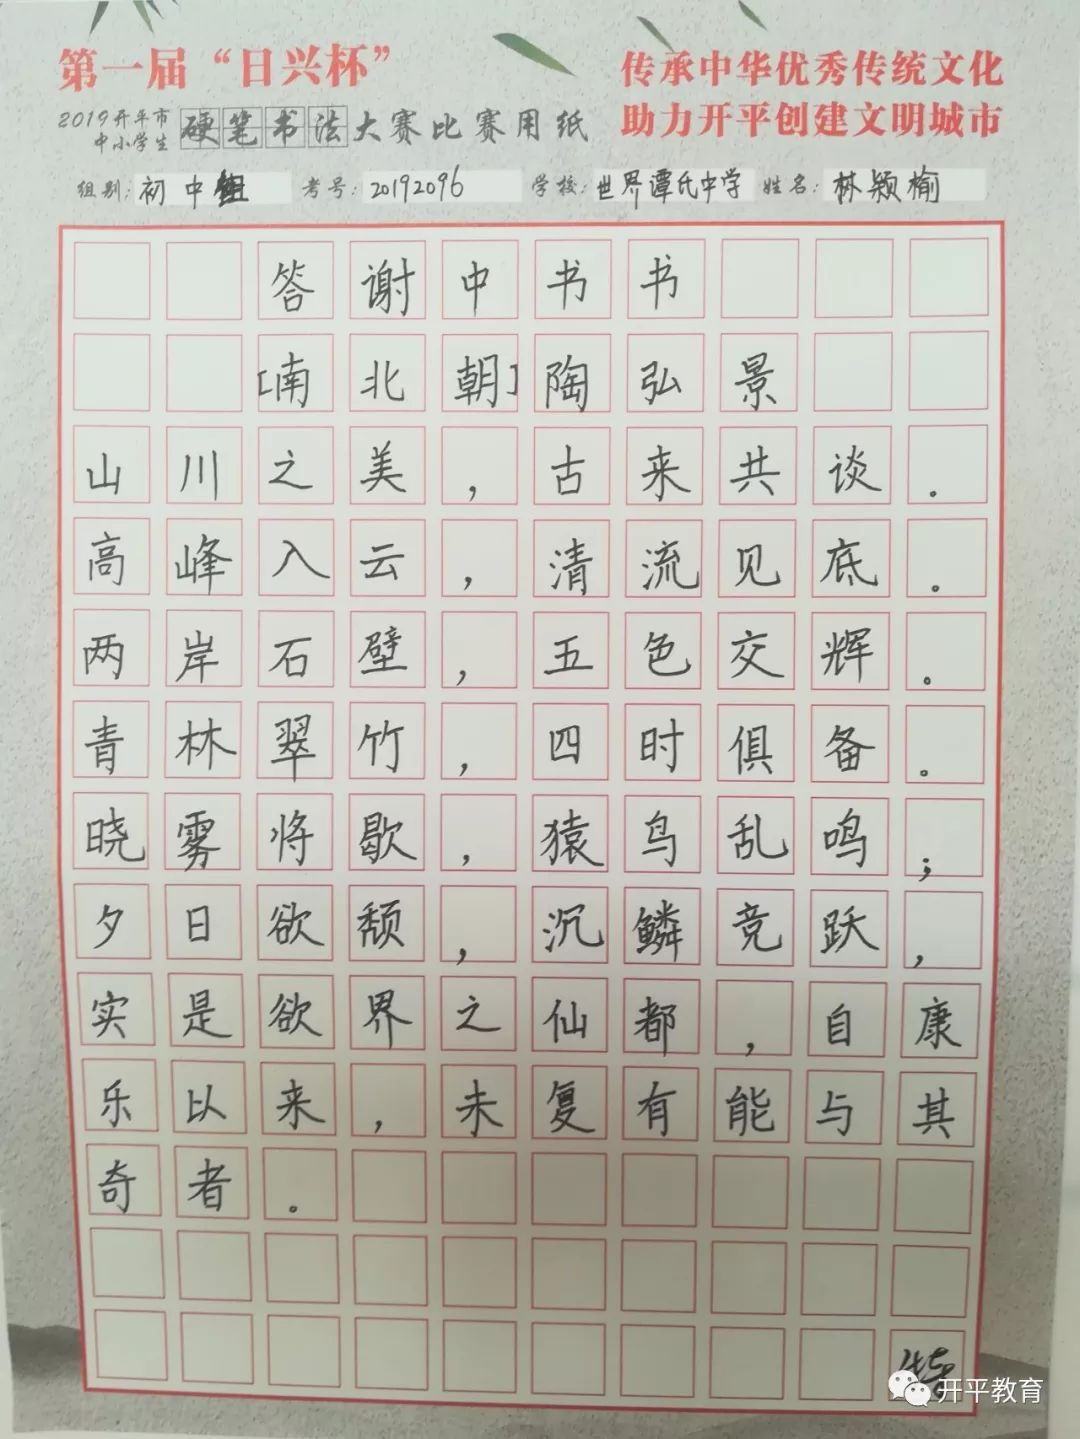 第一届“日兴杯”
传承中华优秀传统文化
助力开平创建文明城市
2019开平市
中小学生
硬笔书法大赛比赛用纸
组别:初中组 考号:20192096 学校:世界谭氏中学 姓名:林颖榆
答谢中书书
[南北朝]陶弘景
山川之美，古来共谈。
高峰入云，清流见底。
两岸石壁，五色交辉。
青林翠竹，四时俱备。
晓雾将歇，猿鸟乱鸣；
夕日欲颓，沉鳞竞跃，
实是欲界之仙都，自康
乐以来，未复有能与其
奇者。
开平教育